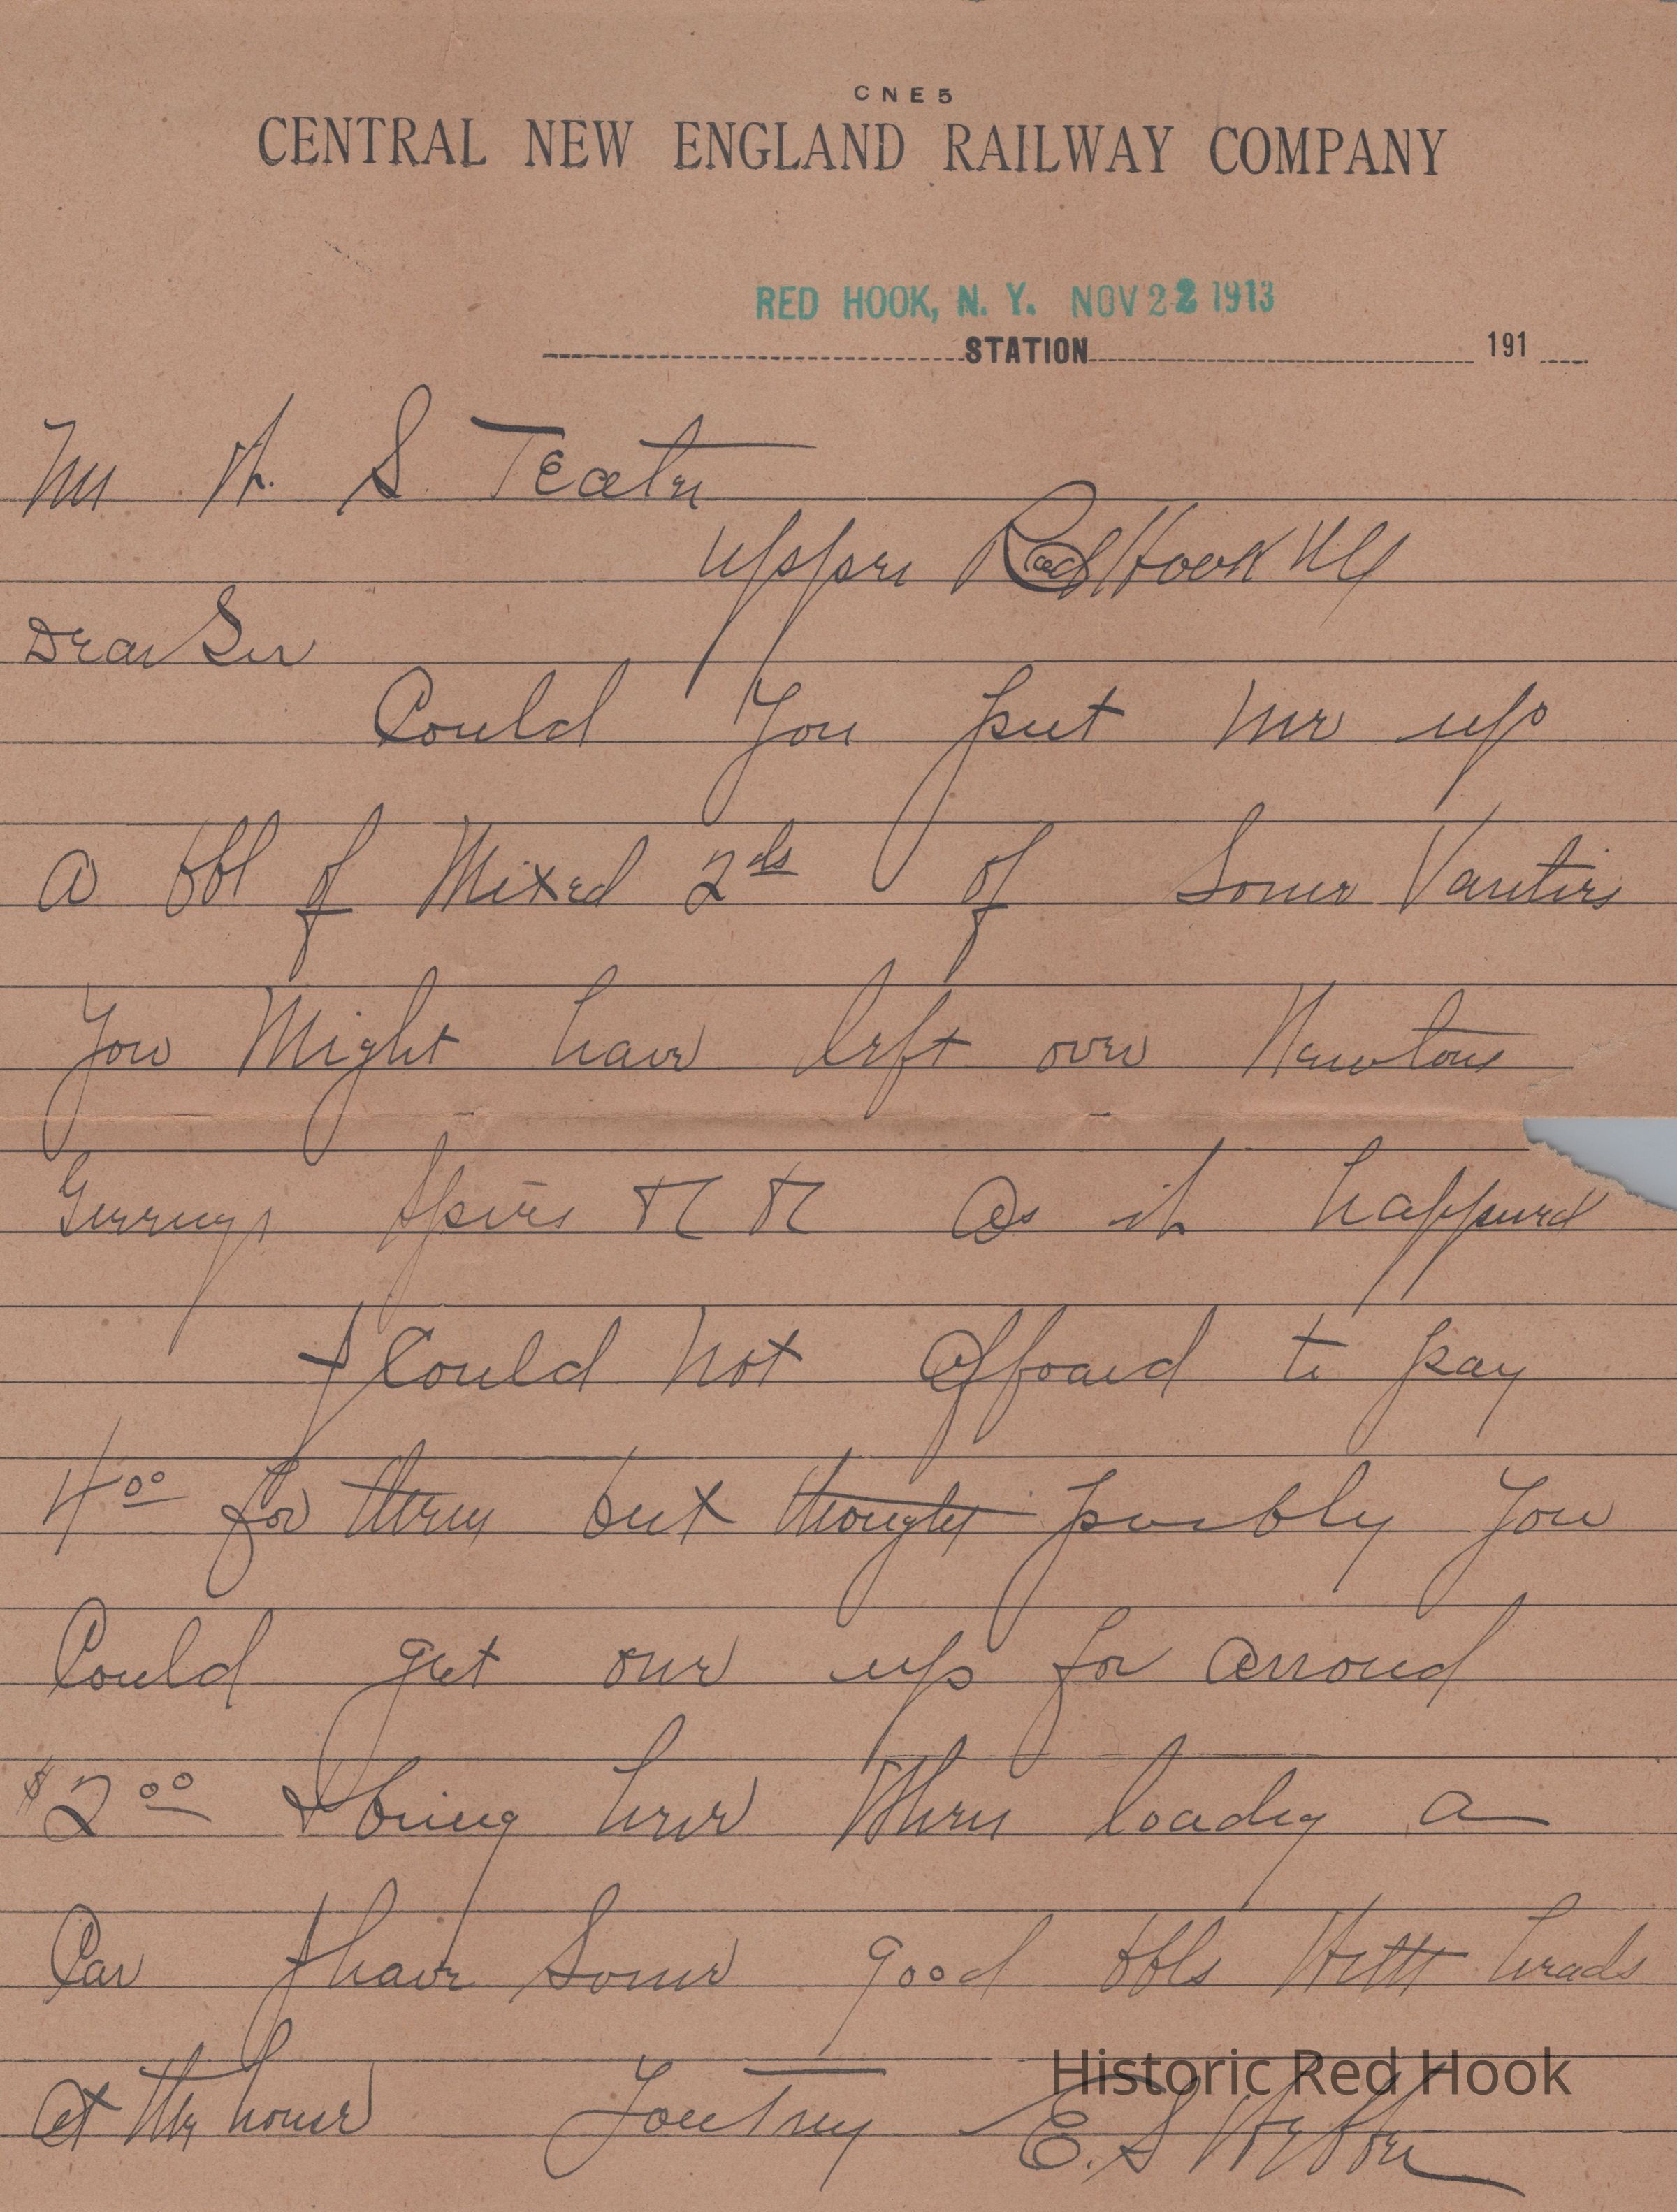 CNE5
CENTRAL NEW ENGLAND RAILWAY COMPANY
RED HOOK, N. Y. NOV 22 1913
STATION 191
Mr S Teater
Upper Red Hook NY
Dear Sir
Could You put me up
a bbl of Mixed 2ds of Some Varities
You Might have left over Newtons
Spies as it happened
I Could Not Affoard to pay
4oo for them but thought possibly You
Could get one up for arround
$2oo & bring here When loading a
Car I have Some good bbls With heads
at the house Yours Truly E. S
Historic Red Hook